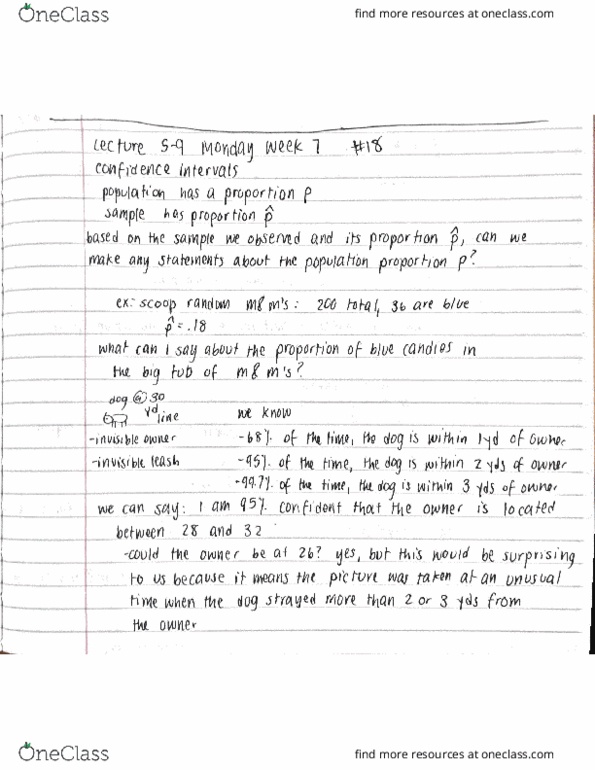 OneClass
find more resources at oneclass.com
Lecture 5-9 Monday Week 7 #18
confidence intervals
population has a proportion p
sample has proportion p̂
based on the sample we observed and its proportion p̂, can we
make any statements about the population proportion p?
ex: scoop random m&m's: 200 total, 36 are blue
p̂ = .18
what can I say about the proportion of blue candies in
the big tub of m&m's?
dog @ 30
yd line
we know
-invisible owner
-68% of the time, the dog is within 1yd of owner
-invisible leash
-95% of the time, the dog is within 2 yds of owner
-99.7% of the time, the dog is within 3 yds of owner
we can say: I am 95% confident that the owner is located
between 28 and 32
-could the owner be at 26? yes, but this would be surprising
to us because it means the picture was taken at an unusual
time when the dog strayed more than 2 or 3 yds from
the owner
OneClass
find more resources at oneclass.com